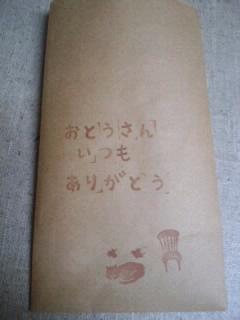 おとうさん
いつも
ありがとう